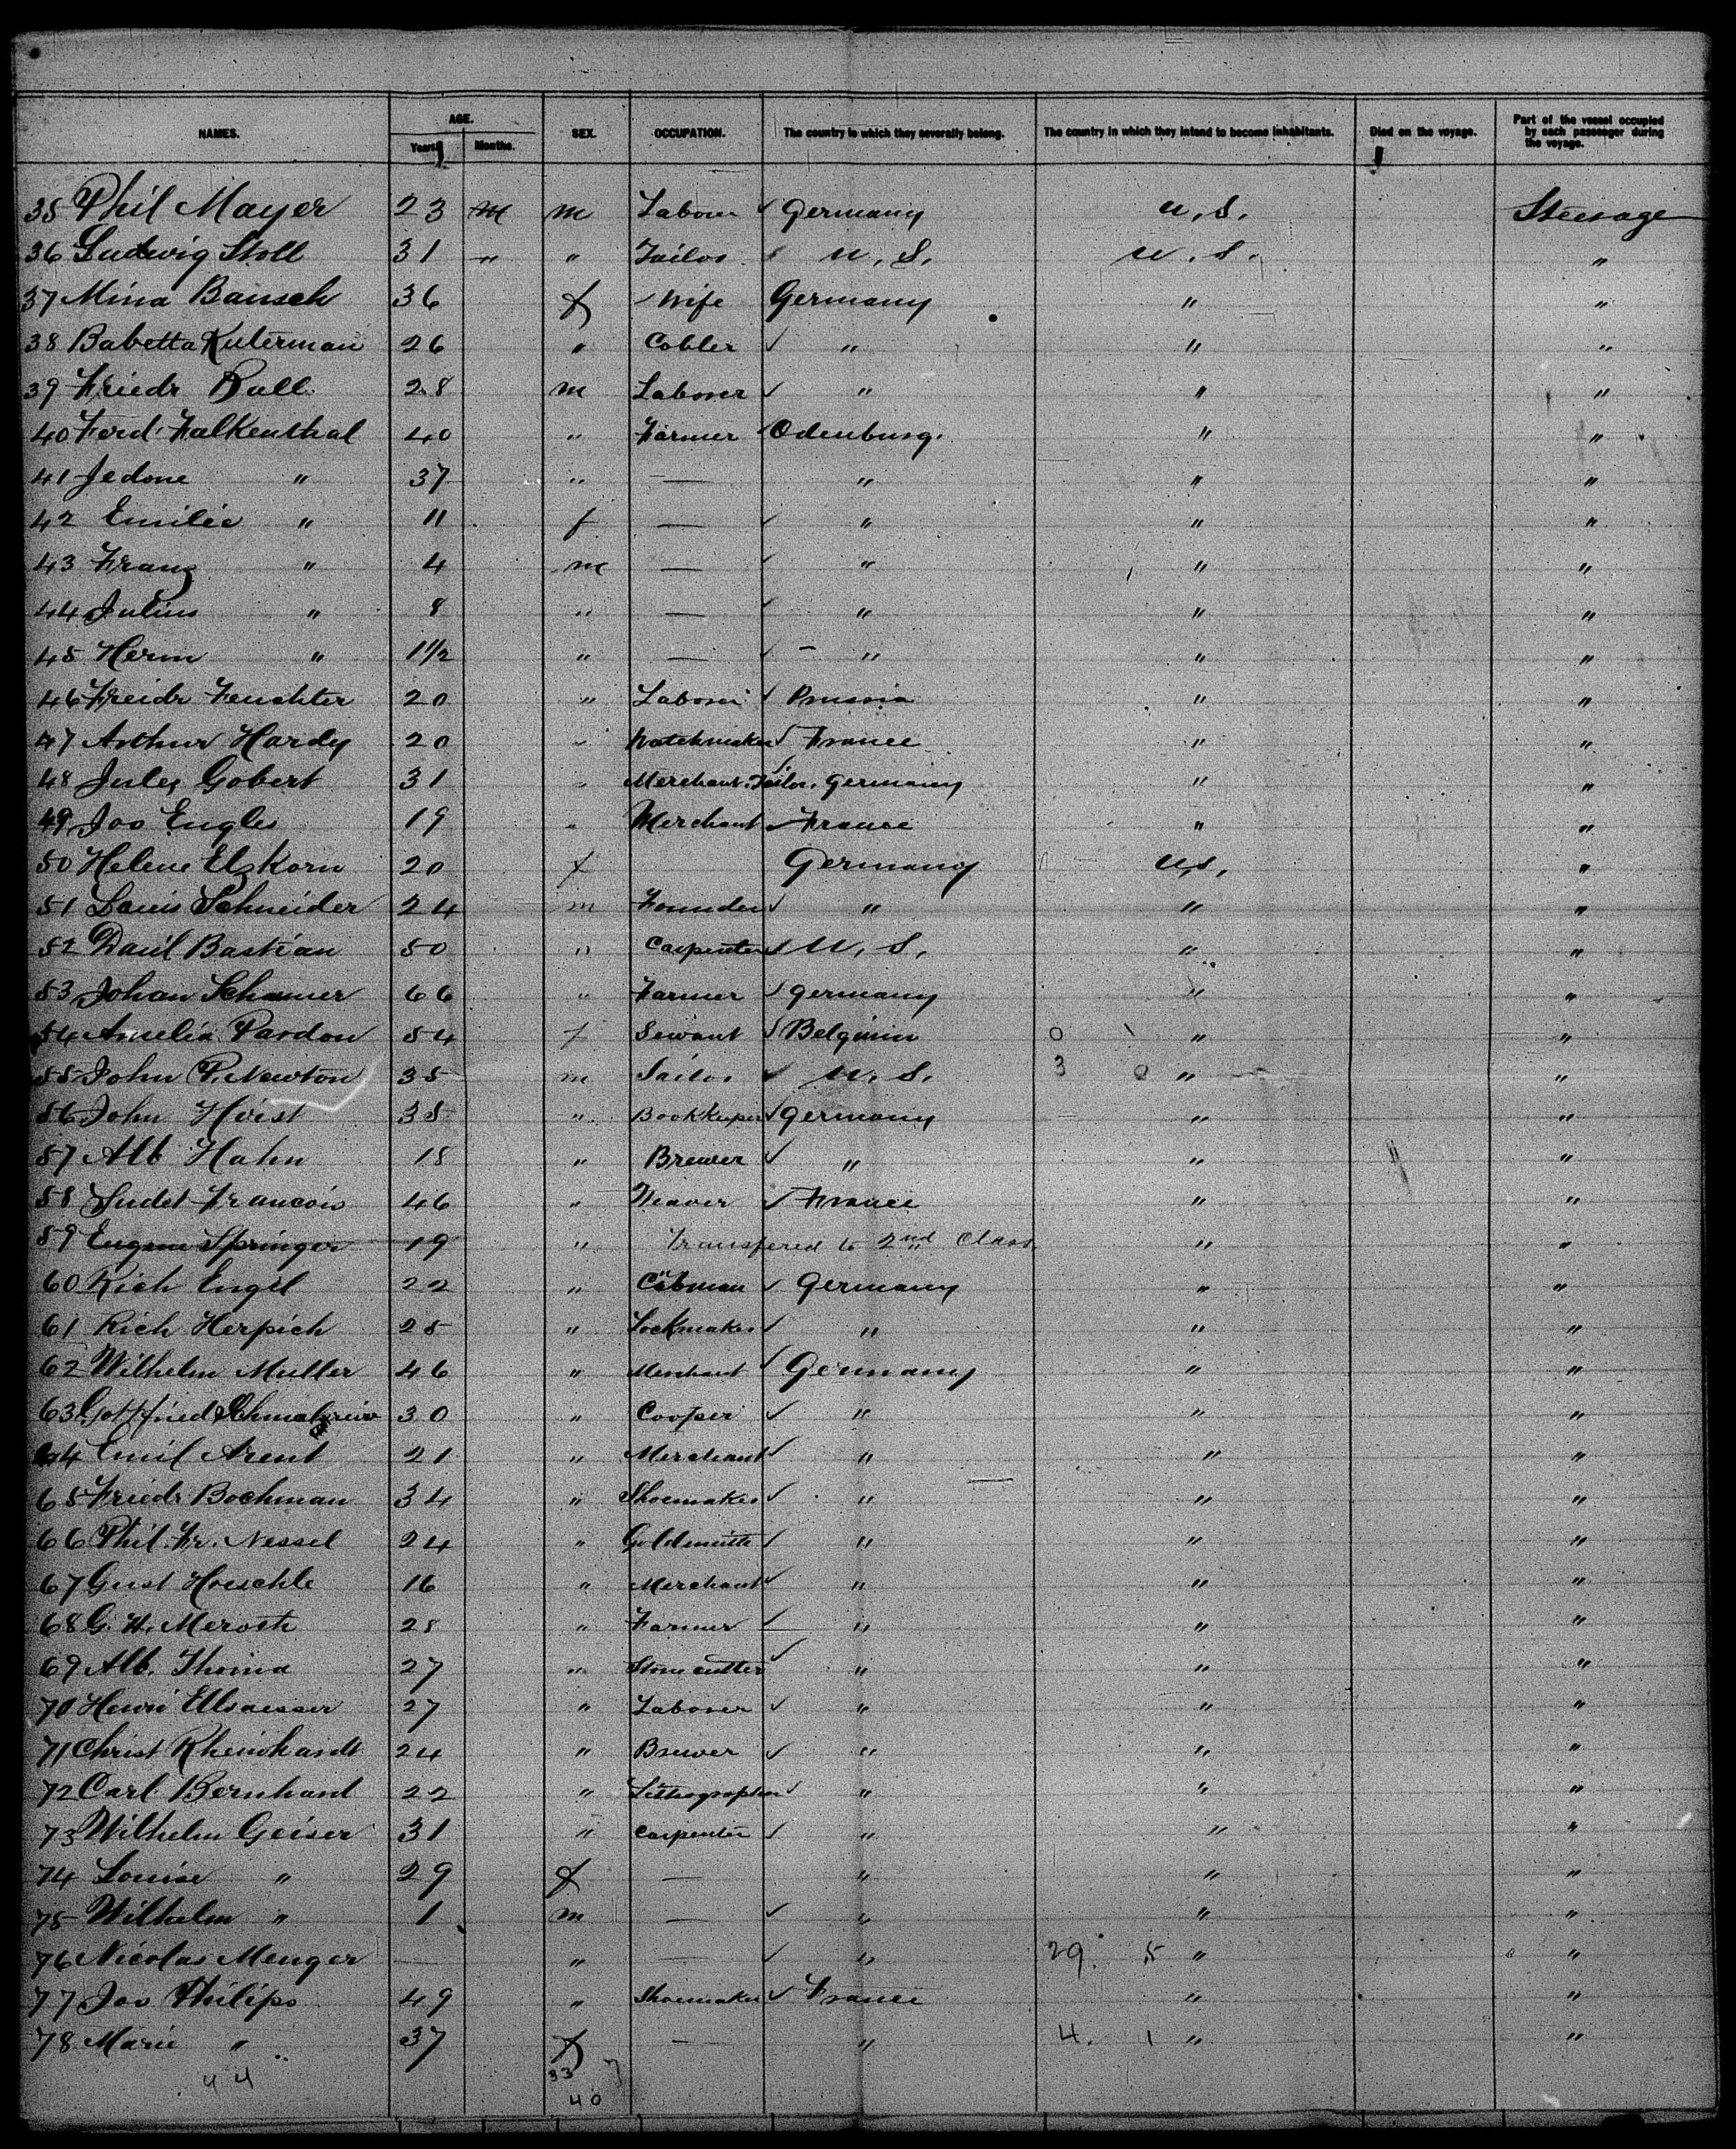 NAMES. AGE. SEX. OCCUPATION. The country to which they severally belong. The country in which they intend to become inhabitants. Died on the voyage. Part of the vessel occupied by each passenger during the voyage.
Years. Months.
35 Phil Mayer 23 M m Laborer ✓ Germany U.S. Steerage
36 Ludwig Stoll 31 " " Tailor U.S. U.S. "
37 Mina Bausch 36 f Wife Germany " "
38 Babetta Kuterman 26 " Cobler ✓ " " "
39 Friedr Rall 28 m Laborer ✓ " " "
40 Ferd. Falkenthal 40 " Farmer ✓ Odenburg. " "
41 Jedone " 37 " — " " "
42 Emilie " 11 f — ✓ " " "
43 Franz " 4 m — ✓ " " "
44 Julius " 8 " — ✓ " " "
45 Herm " 1 1/2 " — ✓ - " " "
46 Freidr Feuchter 20 " Laborer ✓ Prussia " "
47 Arthur Hardy 20 " Watchmaker ✓ France " "
48 Jules Gobert 31 " Merchant. Tailor. ✓ Germany " "
49 Jos Engles 19 " Merchant ✓ France " "
50 Helene Elzkorn 20 f Germany U.S. "
51 Louis Schneider 24 m Founder ✓ " " "
52 Danil Bastian 50 " Carpenter ✓ U.S. " "
53 Johan Schamer 66 " Farmer ✓ Germany " "
54 Amelia Pardon 54 f Sewant ✓ Belgium 0 \ " "
55 John P. Newton 35 m Sailor ✓ U.S. 3 0 " "
56 John Hoist 35 " Bookkeeper ✓ Germany " "
57 Alb Hahn 18 " Brewer ✓ " " "
58 Sudet Francois 46 " Weaver ✓ France " "
59 Eugene Springer 19 " Transfered to 2nd Class " "
60 Rich Engel 22 " Cabman ✓ Germany " "
61 Rich Herpich 25 " Lockmaker ✓ " " "
62 Wilhelm Muller 46 " Merchant ✓ Germany " "
63 Gottfried 30 " Cooper ✓ " " "
64 Emil Arent 21 " Merchant ✓ " " "
65 Friedr Bochman 34 " Shoemaker ✓ " " "
66 Phil. Fr. Nessel 24 " Goldsmith ✓ " " "
67 Gust Hoeschle 16 " Merchant ✓ " " "
68 G. H. Meroth 28 " Farmer ✓ " " "
69 Alb. Thoma 27 " Stone cutter ✓ " " "
70 Henri Ellsaesser 27 " Laborer ✓ " " "
71 Christ Rheinhardt 24 " Brewer ✓ " " "
72 Carl Bernhard 22 " Lithographer ✓ " " "
73 Wilhelm Geiser 31 " Carpenter ✓ " " "
74 Louise " 29 f — " " "
75 Wilhelm " 1 m — ✓ " " "
76 Nicolas Menger — " — ✓ " 29. 5 " "
77 Jos Philips 49 " Shoemaker ✓ France " "
78 Marie " 37 f — " 4. 1 " "
44 33 7
40